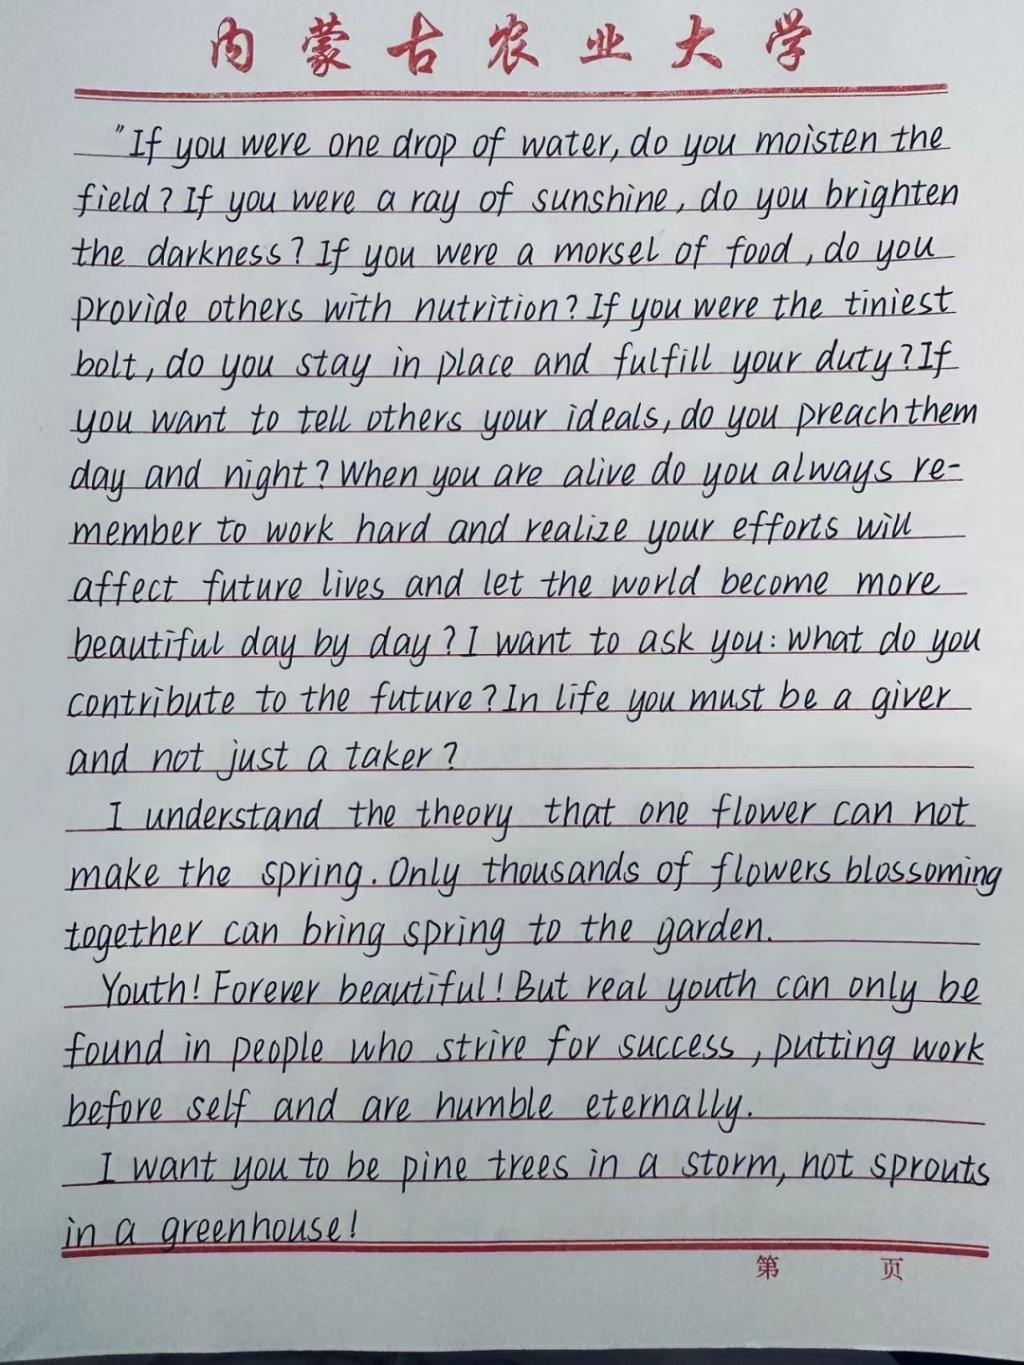 内蒙古农业大学
"If you were one drop of water, do you moisten the
field? If you were a ray of sunshine, do you brighten
the darkness? If you were a morsel of food, do you
provide others with nutrition? If you were the tiniest
bolt, do you stay in place and fulfill your duty? If
you want to tell others your ideals, do you preach them
day and night? When you are alive do you always re-
member to work hard and realize your efforts will
affect future lives and let the world become more
beautiful day by day? I want to ask you: what do you
contribute to the future? In life you must be a giver
and not just a taker?
I understand the theory that one flower can not
make the spring. Only thousands of flowers blossoming
together can bring spring to the garden.
Youth! Forever beautiful! But real youth can only be
found in people who strive for success, putting work
before self and are humble eternally.
I want you to be pine trees in a storm, not sprouts
in a greenhouse!
第 页